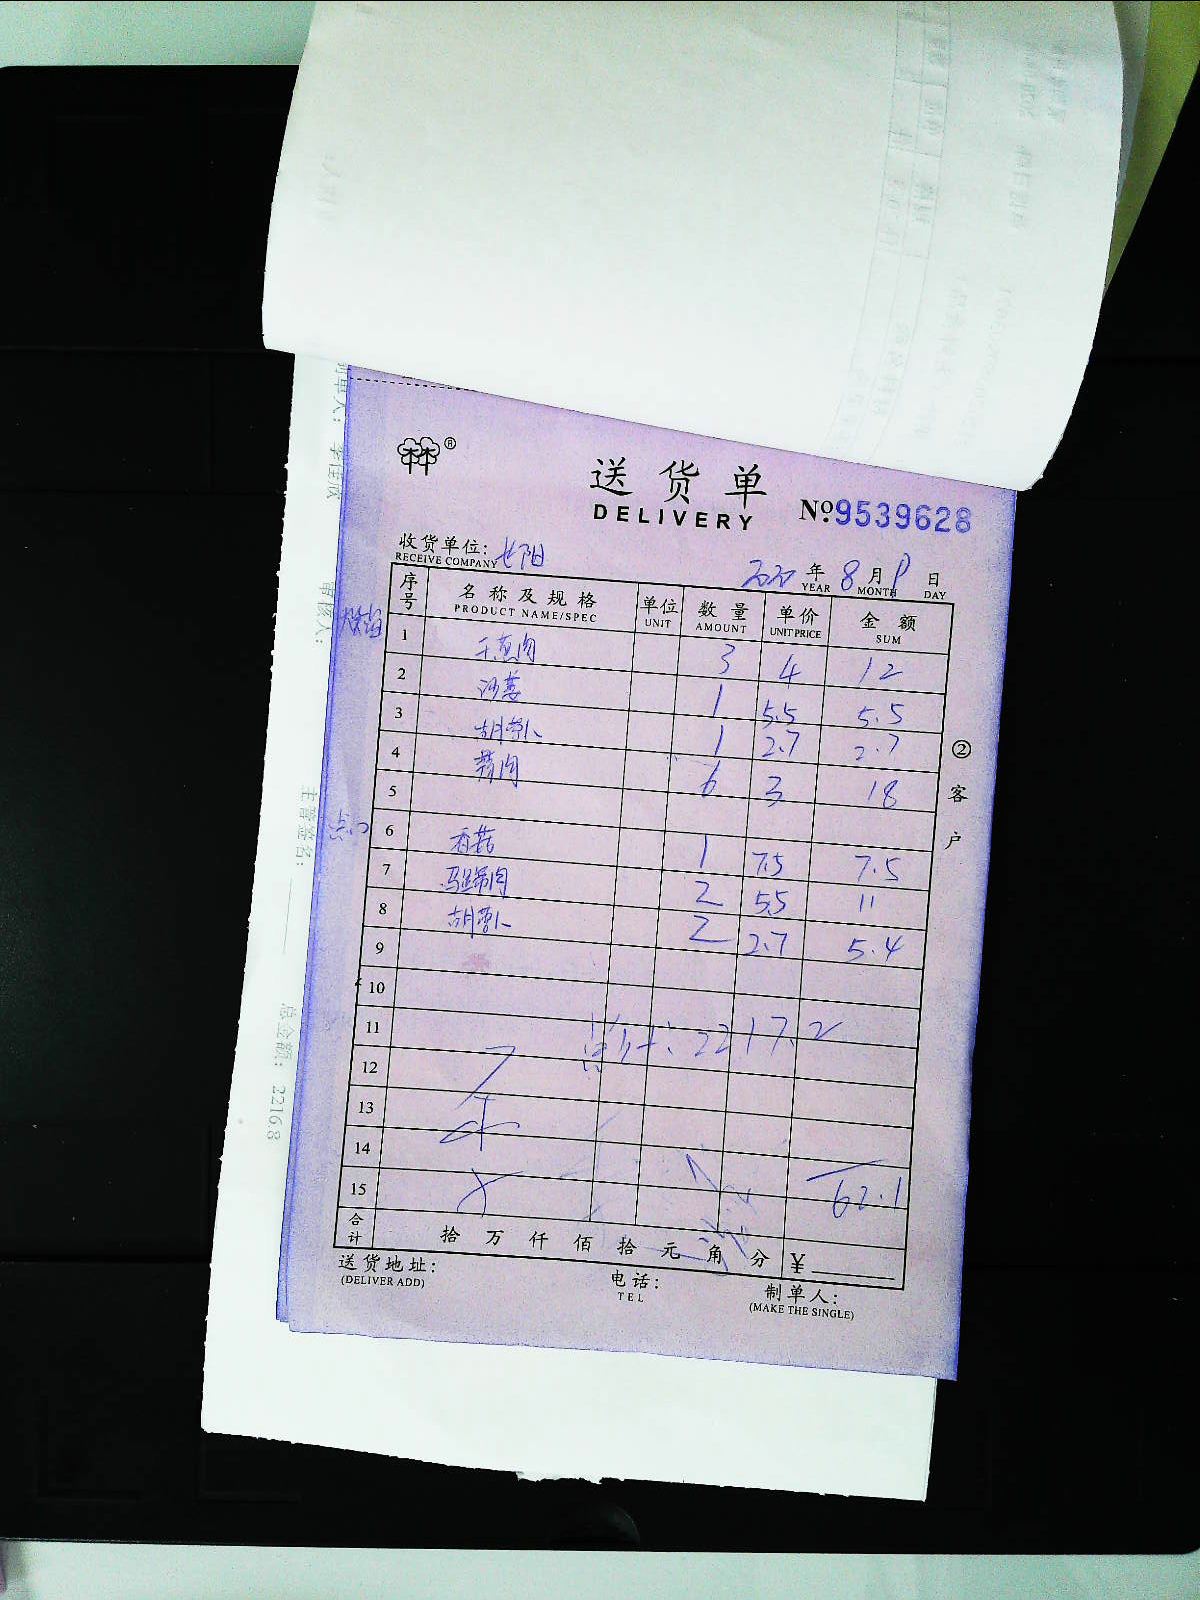 送货单
DELIVERY
№ 9539628
收货单位: 长阳
RECEIVE COMPANY
年 8 月 日
YEAR MONTH DAY
序号 名称及规格 单位 数量 单价 金额
PRODUCT NAME/SPEC UNIT AMOUNT UNIT PRICE SUM
1 3 4 12
2 1 5.5 5.5
3 胡萝卜 1 2.7 2.7
4 6 3 18
5
6 香菇 1 7.5 7.5
7 2 5.5 11
8 胡萝卜 2 2.7 5.4
9
10
11 总计: 2217.2
12
13
14
15 62.1
合计 拾 万 仟 佰 拾 元 角 分 ¥
送货地址:
(DELIVER ADD)
电话:
TEL
制单人:
(MAKE THE SINGLE)
② 客户
制单人:
审核人:
主管签名:
总金额: 2216.8